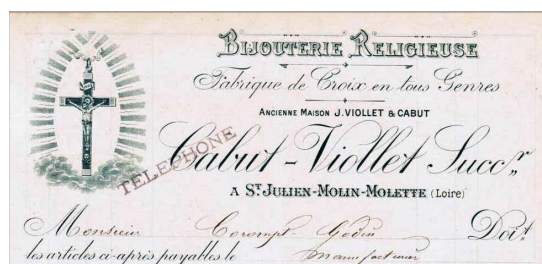 BIJOUTERIE RELIGIEUSE
Fabrique de Croix en tous Genres
ANCIENNE MAISON J. VIOLLET & CABUT
Cabut-Viollet Succr
TELEPHONE
A ST JULIEN-MOLIN-MOLETTE (Loire)
Monsieur Corompt-Godin Doit
les articles ci-après payables le manufacturier